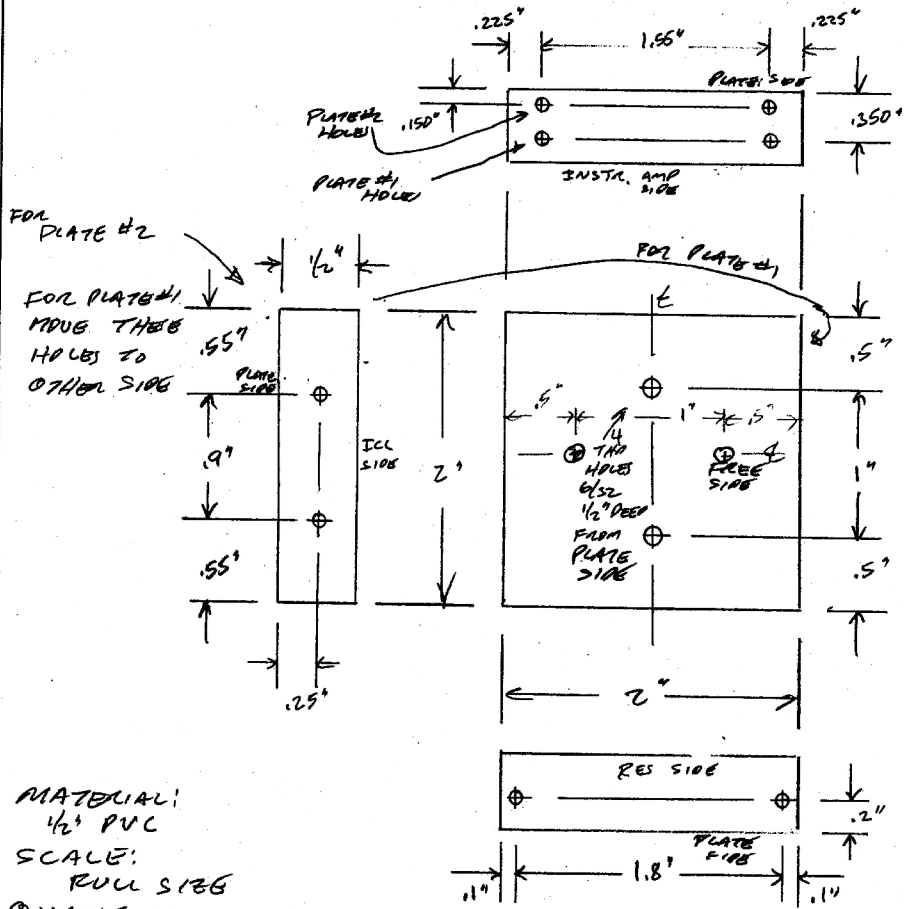 .225"
1.55"
.225"
PLATE SIDE
.150"
.350"
PLATE #2
HOLE
PLATE #1
HOLES
INSTR. AMP
SIDE
FOR
PLATE #2
1/2"
FOR PLATE #1
FOR PLATE #1
MOVE THESE
HOLES TO
OTHER SIDE
.55"
PLATE
SIDE
.9"
ICL
SIDE
2"
.55"
.25"
.5"
.5"
1"
.5"
4
TAP
HOLES
6/32
1/2" DEEP
FROM
PLATE
SIDE
FREE
SIDE
1"
.5"
2"
RES SIDE
.2"
PLATE
SIDE
.1"
1.8"
.1"
MATERIAL:
1/2" PVC
SCALE:
FULL SIZE